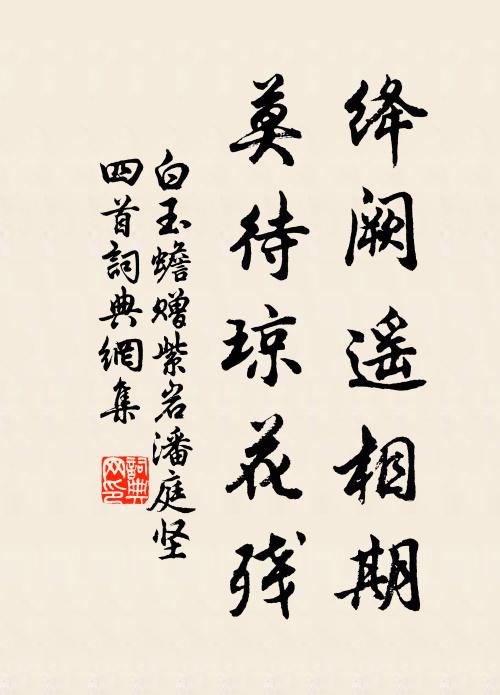 绛阙遥相期
莫待琼花残
白玉蟾赠紫岩潘庭坚
四首詞典網集
詞典
网印